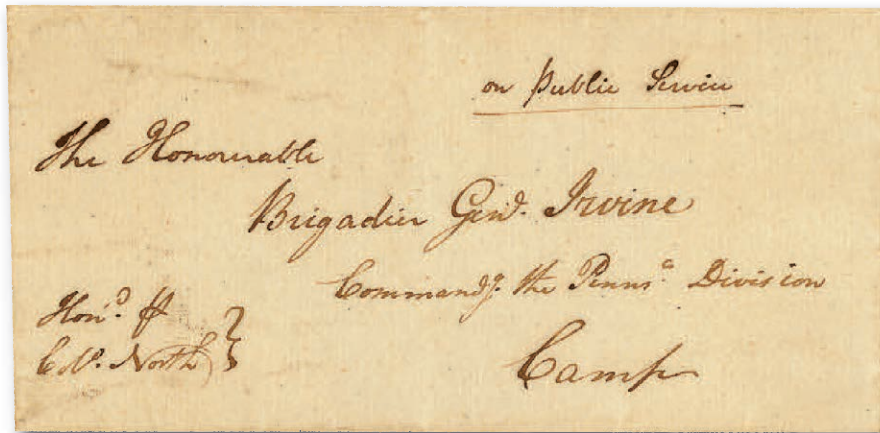 on Public Service
The Honourable
Brigadier Genl. Irvine
Commandg. the Pennsa. Division
Hond. ⅌
Coll. North
Camp